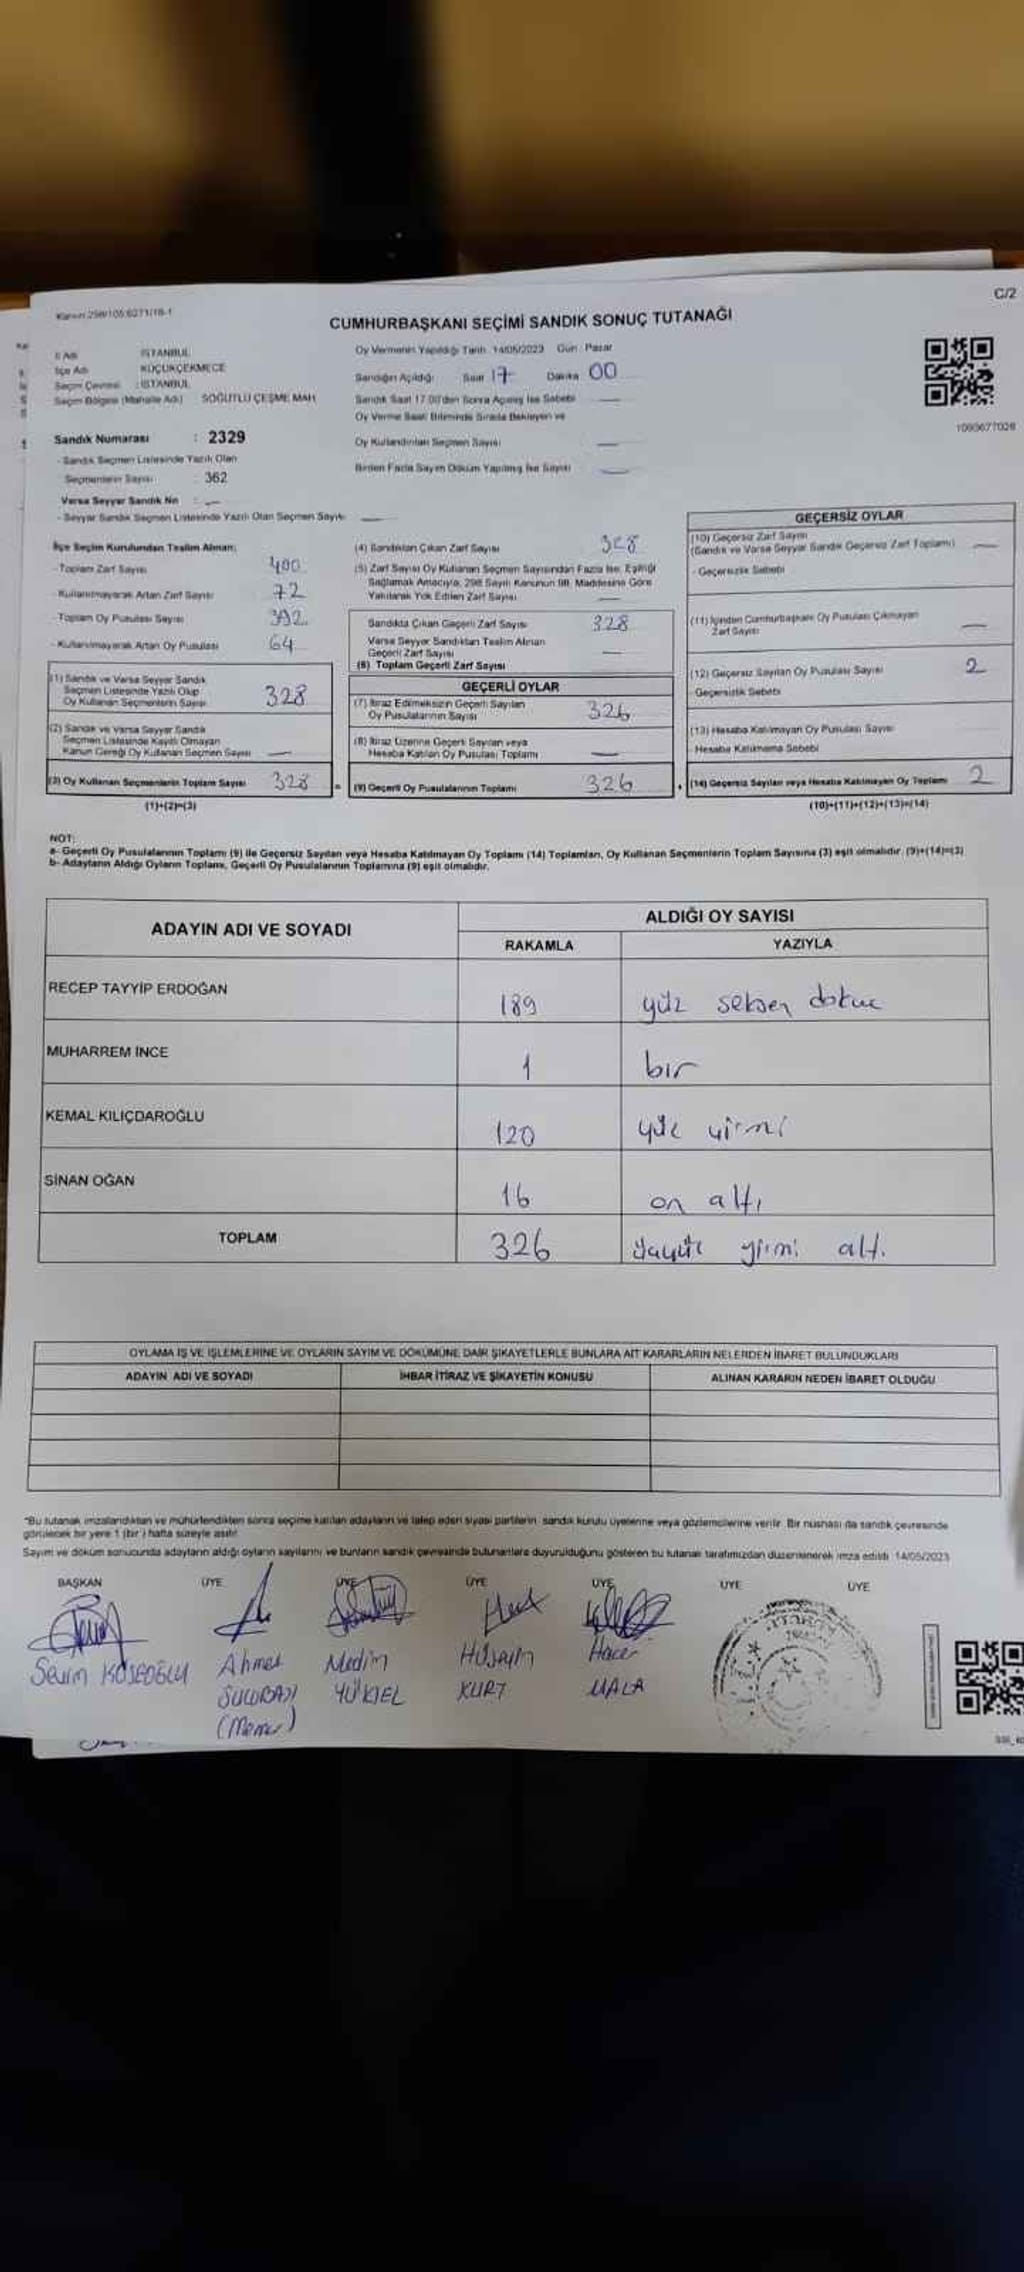 Kanun:298/105;6271/18-1
C/2
CUMHURBAŞKANI SEÇİMİ SANDIK SONUÇ TUTANAĞI
İl Adı : İSTANBUL
İlçe Adı : KÜÇÜKÇEKMECE
Seçim Çevresi : İSTANBUL
Seçim Bölgesi (Mahalle Adı) SÖĞÜTLÜ ÇEŞME MAH.
Sandık Numarası : 2329
- Sandık Seçmen Listesinde Yazılı Olan
Seçmenlerin Sayısı : 362
Varsa Seyyar Sandık No : —
- Seyyar Sandık Seçmen Listesinde Yazılı Olan Seçmen Sayısı —
Oy Vermenin Yapıldığı Tarih :14/05/2023 Gün : Pazar
Sandığın Açıldığı Saat 17 Dakika 00
Sandık Saat 17:00'den Sonra Açılmış İse Sebebi —
Oy Verme Saati Bitiminde Sırada Bekleyen ve
Oy Kullandırılan Seçmen Sayısı —
Birden Fazla Sayım Döküm Yapılmış İse Sayısı —
1093677028
İlçe Seçim Kurulundan Teslim Alınan;
- Toplam Zarf Sayısı 400
- Kullanılmayarak Artan Zarf Sayısı 72
- Toplam Oy Pusulası Sayısı 392
- Kullanılmayarak Artan Oy Pusulası 64
(1) Sandık ve Varsa Seyyar Sandık
Seçmen Listesinde Yazılı Olup
Oy Kullanan Seçmenlerin Sayısı 328
(2) Sandık ve Varsa Seyyar Sandık
Seçmen Listesinde Kayıtlı Olmayan
Kanun Gereği Oy Kullanan Seçmen Sayısı —
(3) Oy Kullanan Seçmenlerin Toplam Sayısı 328 =
(1)+(2)=(3)
(4) Sandıktan Çıkan Zarf Sayısı 328
(5) Zarf Sayısı Oy Kullanan Seçmen Sayısından Fazla İse, Eşitliği
Sağlamak Amacıyla, 298 Sayılı Kanunun 98. Maddesine Göre
Yakılarak Yok Edilen Zarf Sayısı —
Sandıkta Çıkan Geçerli Zarf Sayısı 328
Varsa Seyyar Sandıktan Teslim Alınan
Geçerli Zarf Sayısı —
(6) Toplam Geçerli Zarf Sayısı
GEÇERLİ OYLAR
(7) İtiraz Edilmeksizin Geçerli Sayılan
Oy Pusulalarının Sayısı 326
(8) İtiraz Üzerine Geçerli Sayılan veya
Hesaba Katılan Oy Pusulası Toplamı —
(9) Geçerli Oy Pusulalarının Toplamı 326 +
GEÇERSİZ OYLAR
(10) Geçersiz Zarf Sayısı
(Sandık ve Varsa Seyyar Sandık Geçersiz Zarf Toplamı) —
- Geçersizlik Sebebi
(11) İçinden Cumhurbaşkanı Oy Pusulası Çıkmayan
Zarf Sayısı —
(12) Geçersiz Sayılan Oy Pusulası Sayısı 2
- Geçersizlik Sebebi
(13) Hesaba Katılmayan Oy Pusulası Sayısı
- Hesaba Katılmama Sebebi
(14) Geçersiz Sayılan veya Hesaba Katılmayan Oy Toplamı 2
(10)+(11)+(12)+(13)=(14)
NOT:
a- Geçerli Oy Pusulalarının Toplamı (9) ile Geçersiz Sayılan veya Hesaba Katılmayan Oy Toplamı (14) Toplamları, Oy Kullanan Seçmenlerin Toplam Sayısına (3) eşit olmalıdır. (9)+(14)=(3)
b- Adayların Aldığı Oyların Toplamı, Geçerli Oy Pusulalarının Toplamına (9) eşit olmalıdır.
ADAYIN ADI VE SOYADI ALDIĞI OY SAYISI
RAKAMLA YAZIYLA
RECEP TAYYİP ERDOĞAN 189 yüz seksen dokuz
MUHARREM İNCE 1 bir
KEMAL KILIÇDAROĞLU 120 yüz yirmi
SİNAN OĞAN 16 on altı
TOPLAM 326 üçyüz yirmi altı
OYLAMA İŞ VE İŞLEMLERİNE VE OYLARIN SAYIM VE DÖKÜMÜNE DAİR ŞİKAYETLERLE BUNLARA AİT KARARLARIN NELERDEN İBARET BULUNDUKLARI
ADAYIN ADI VE SOYADI İHBAR İTİRAZ VE ŞİKAYETİN KONUSU ALINAN KARARIN NEDEN İBARET OLDUĞU
*Bu tutanak imzalandıktan ve mühürlendikten sonra seçime katılan adayların ve talep eden siyasi partilerin sandık kurulu üyelerine veya gözlemcilerine verilir. Bir nüshası da sandık çevresinde
görülecek bir yere 1 (bir ) hafta süreyle asılır.
Sayım ve döküm sonucunda adayların aldığı oyların sayılarını ve bunların sandık çevresinde bulunanlara duyurulduğunu gösteren bu tutanak tarafımızdan düzenlenerek imza edildi. 14/05/2023
BAŞKAN ÜYE ÜYE ÜYE ÜYE ÜYE ÜYE
Sevim KÖSEOĞLU Ahmet Nedim Hüseyin Hacer
YÜKSEL KURT MALA
(Memur)